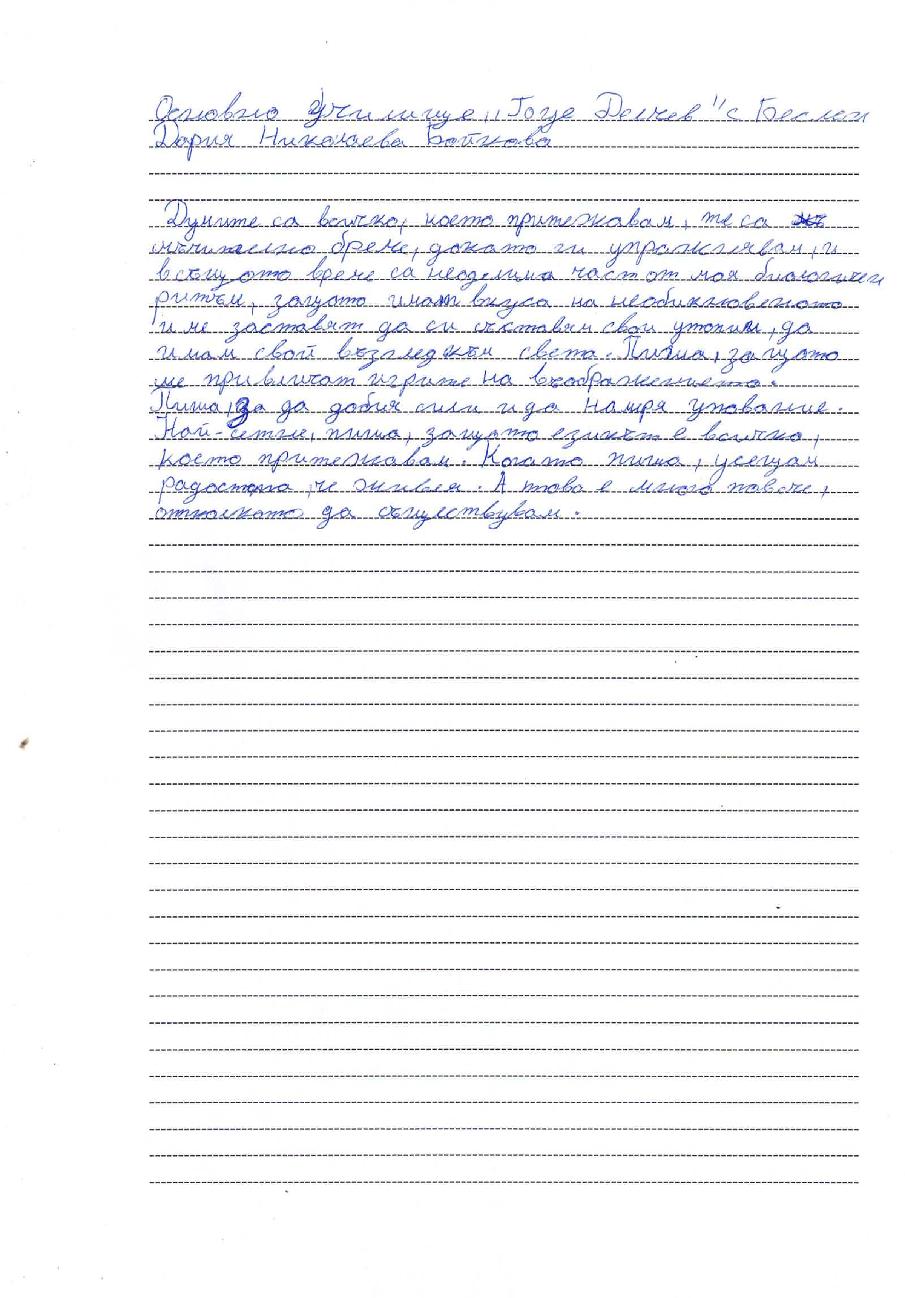 Основно Училище „Гоце Делчев" с Беслен
Дария Николаева Бойкова
Думите са всичко, което притежавам, те са
мъчително бреме, докато ги упражнявам, и
в същото време са неделима част от моя биологичен
ритъм, защото имат вкуса на необикновеното
и ме заставят да си съставям свои утопии, да
имам свой възглед към света. Пиша, защото
ме привличат игрите на въображението.
Пиша, за да добия сили и да намеря упование.
Най-сетне, пиша, защото езикът е всичко,
което притежавам. Когато пиша, усещам
радостта, че живея. А това е много повече,
отколкото да съществувам.